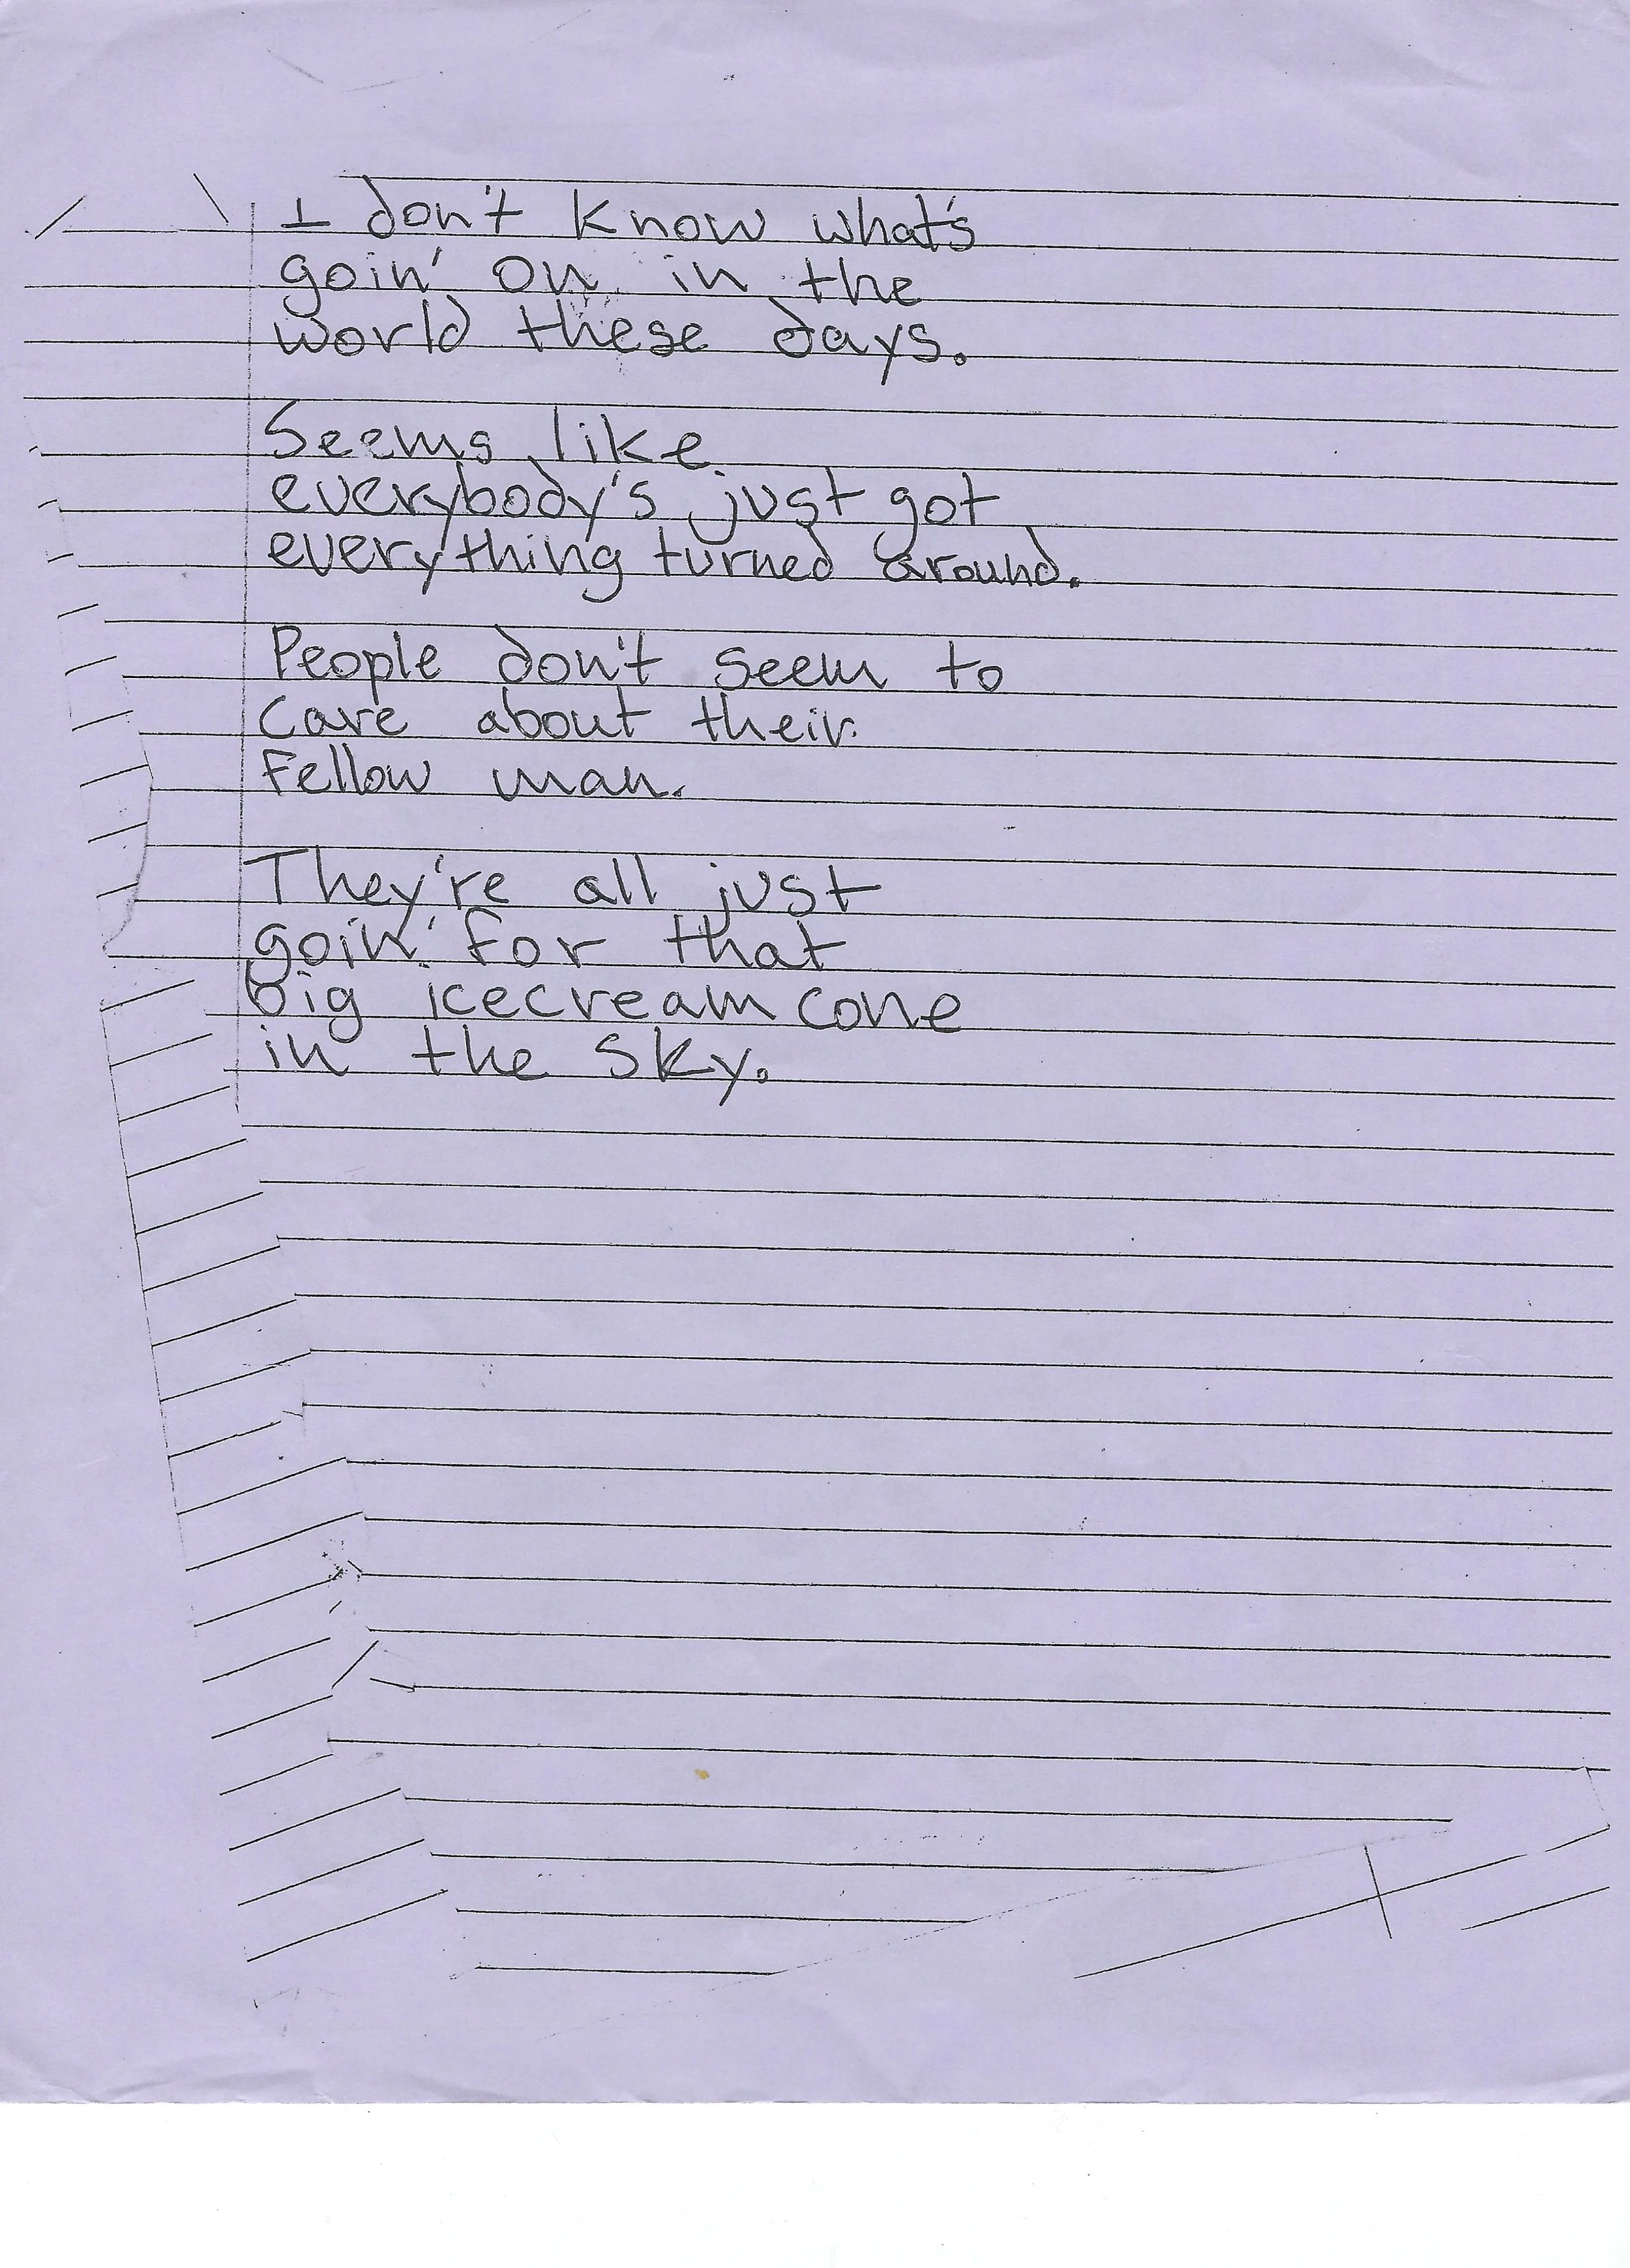 I don't know what's
goin' on in the
world these days.
Seems like
everybody's just got
everything turned around.
People don't seem to
care about their
fellow man.
They're all just
goin' for that
big icecream cone
in the sky.